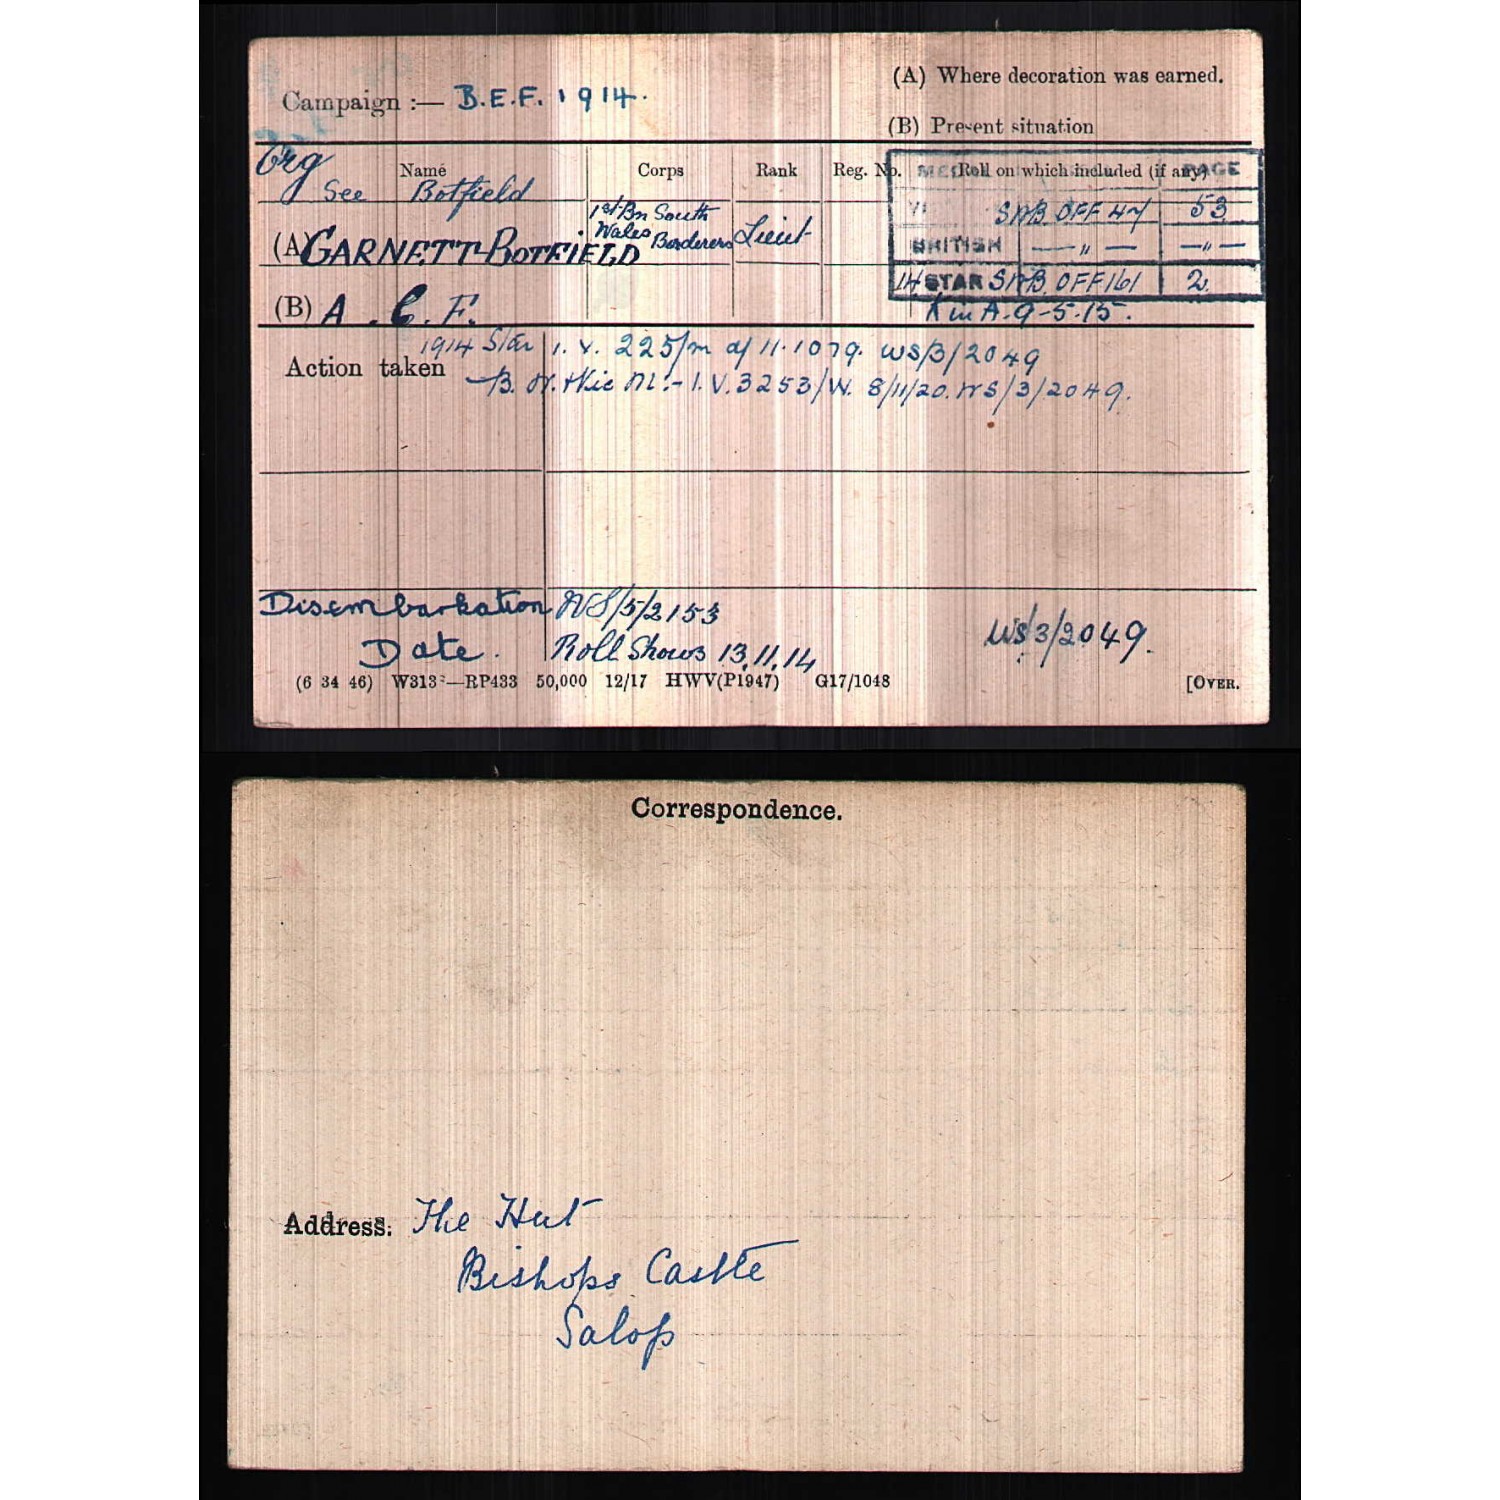 (A) Where decoration was earned.
Campaign :— B.E.F. 1914.
(B) Present situation
Name Corps Rank Reg. No. Roll on which included (if any) PAGE
See Botfield
1st Bn South Wales Borderers Lieut
(A) GARNETT-BOTFIELD
(B) A. C. F.
SWB OFF 47 53
BRITISH — " — — " —
14 STAR SWB OFF 161 2.
K in A. 9-5-15.
Action taken
1914 Star I. V. 225/m d/ 11.1079. WS/3/2049
B. W. & Vic M:- I. V. 3253/W. 8/11/20. WS/3/2049.
Disembarkation WS/5/2153
Date. Roll Shows 13.11.14
WS/3/2049.
(6 34 46) W313 —RP433 50,000 12/17 HWV(P1947) G17/1048 [OVER.
Correspondence.
Address: The Hut
Bishops Castle
Salop